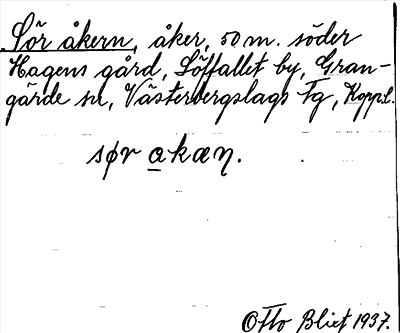 Sör åkern, åker, 50 m. söder
Hagens gård, Löffallet by, Gran-
gärde sn, Västerbergslags Fg, Kopp.l.
sør akæŋ.
Otto Blixt 1937.